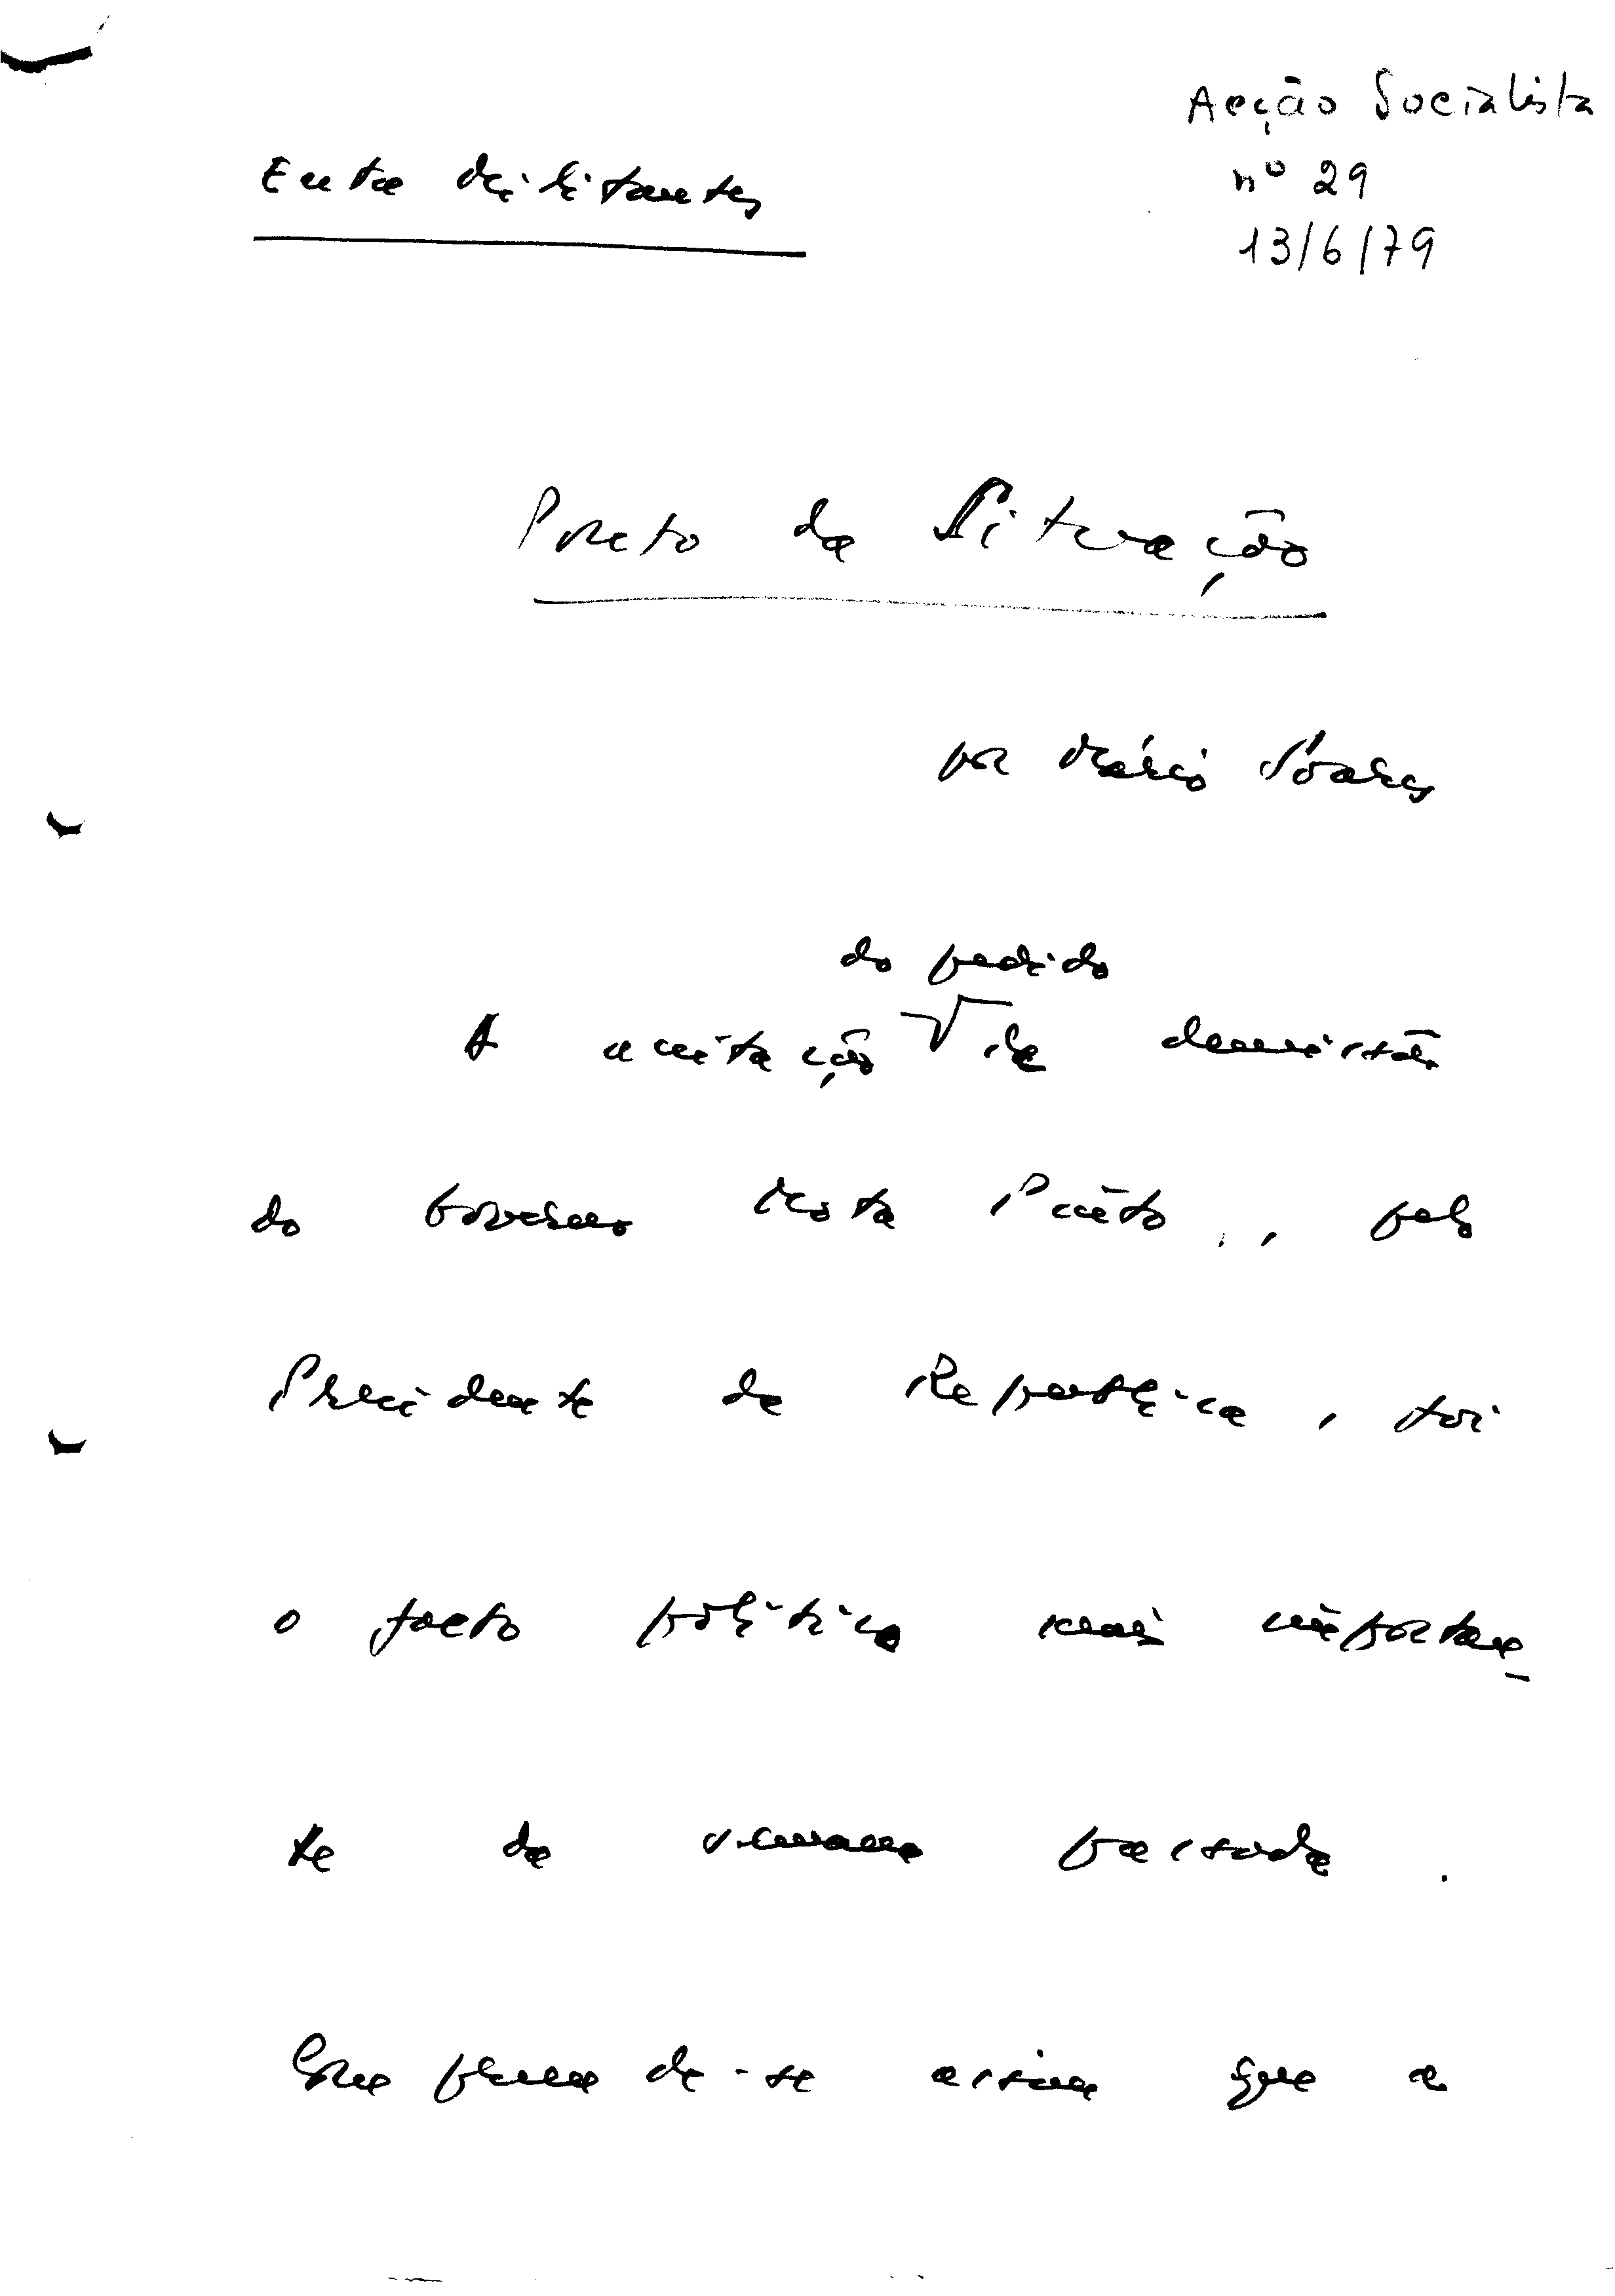 Acção Socialista
nº 29
13/6/79
Entre Militantes
Ponto da Situação
por Mário Soares
do pedido
A aceitação de demissão
do Governo Mota Pinto, pelo
Presidente da República, foi
o facto político mais importan-
te da semana passada.
Compreende-se assim que a